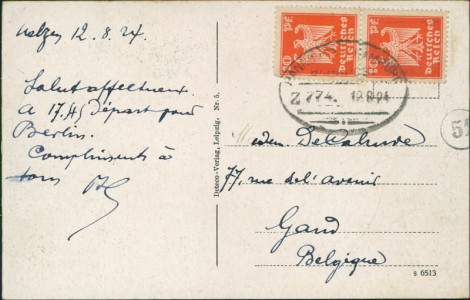 Uelzen 12.8.24.
Salut affectueux.
A 17.45 Départ pour
Berlin.
Compliments à
tous
Deteco-Verlag, Leipzig. Nr. 5.
10 Pf. Deutsches Reich
10 Pf. Deutsches Reich
Z 774. 12.8.24
77, rue de l'avenir
Gand
Belgique
s 6513